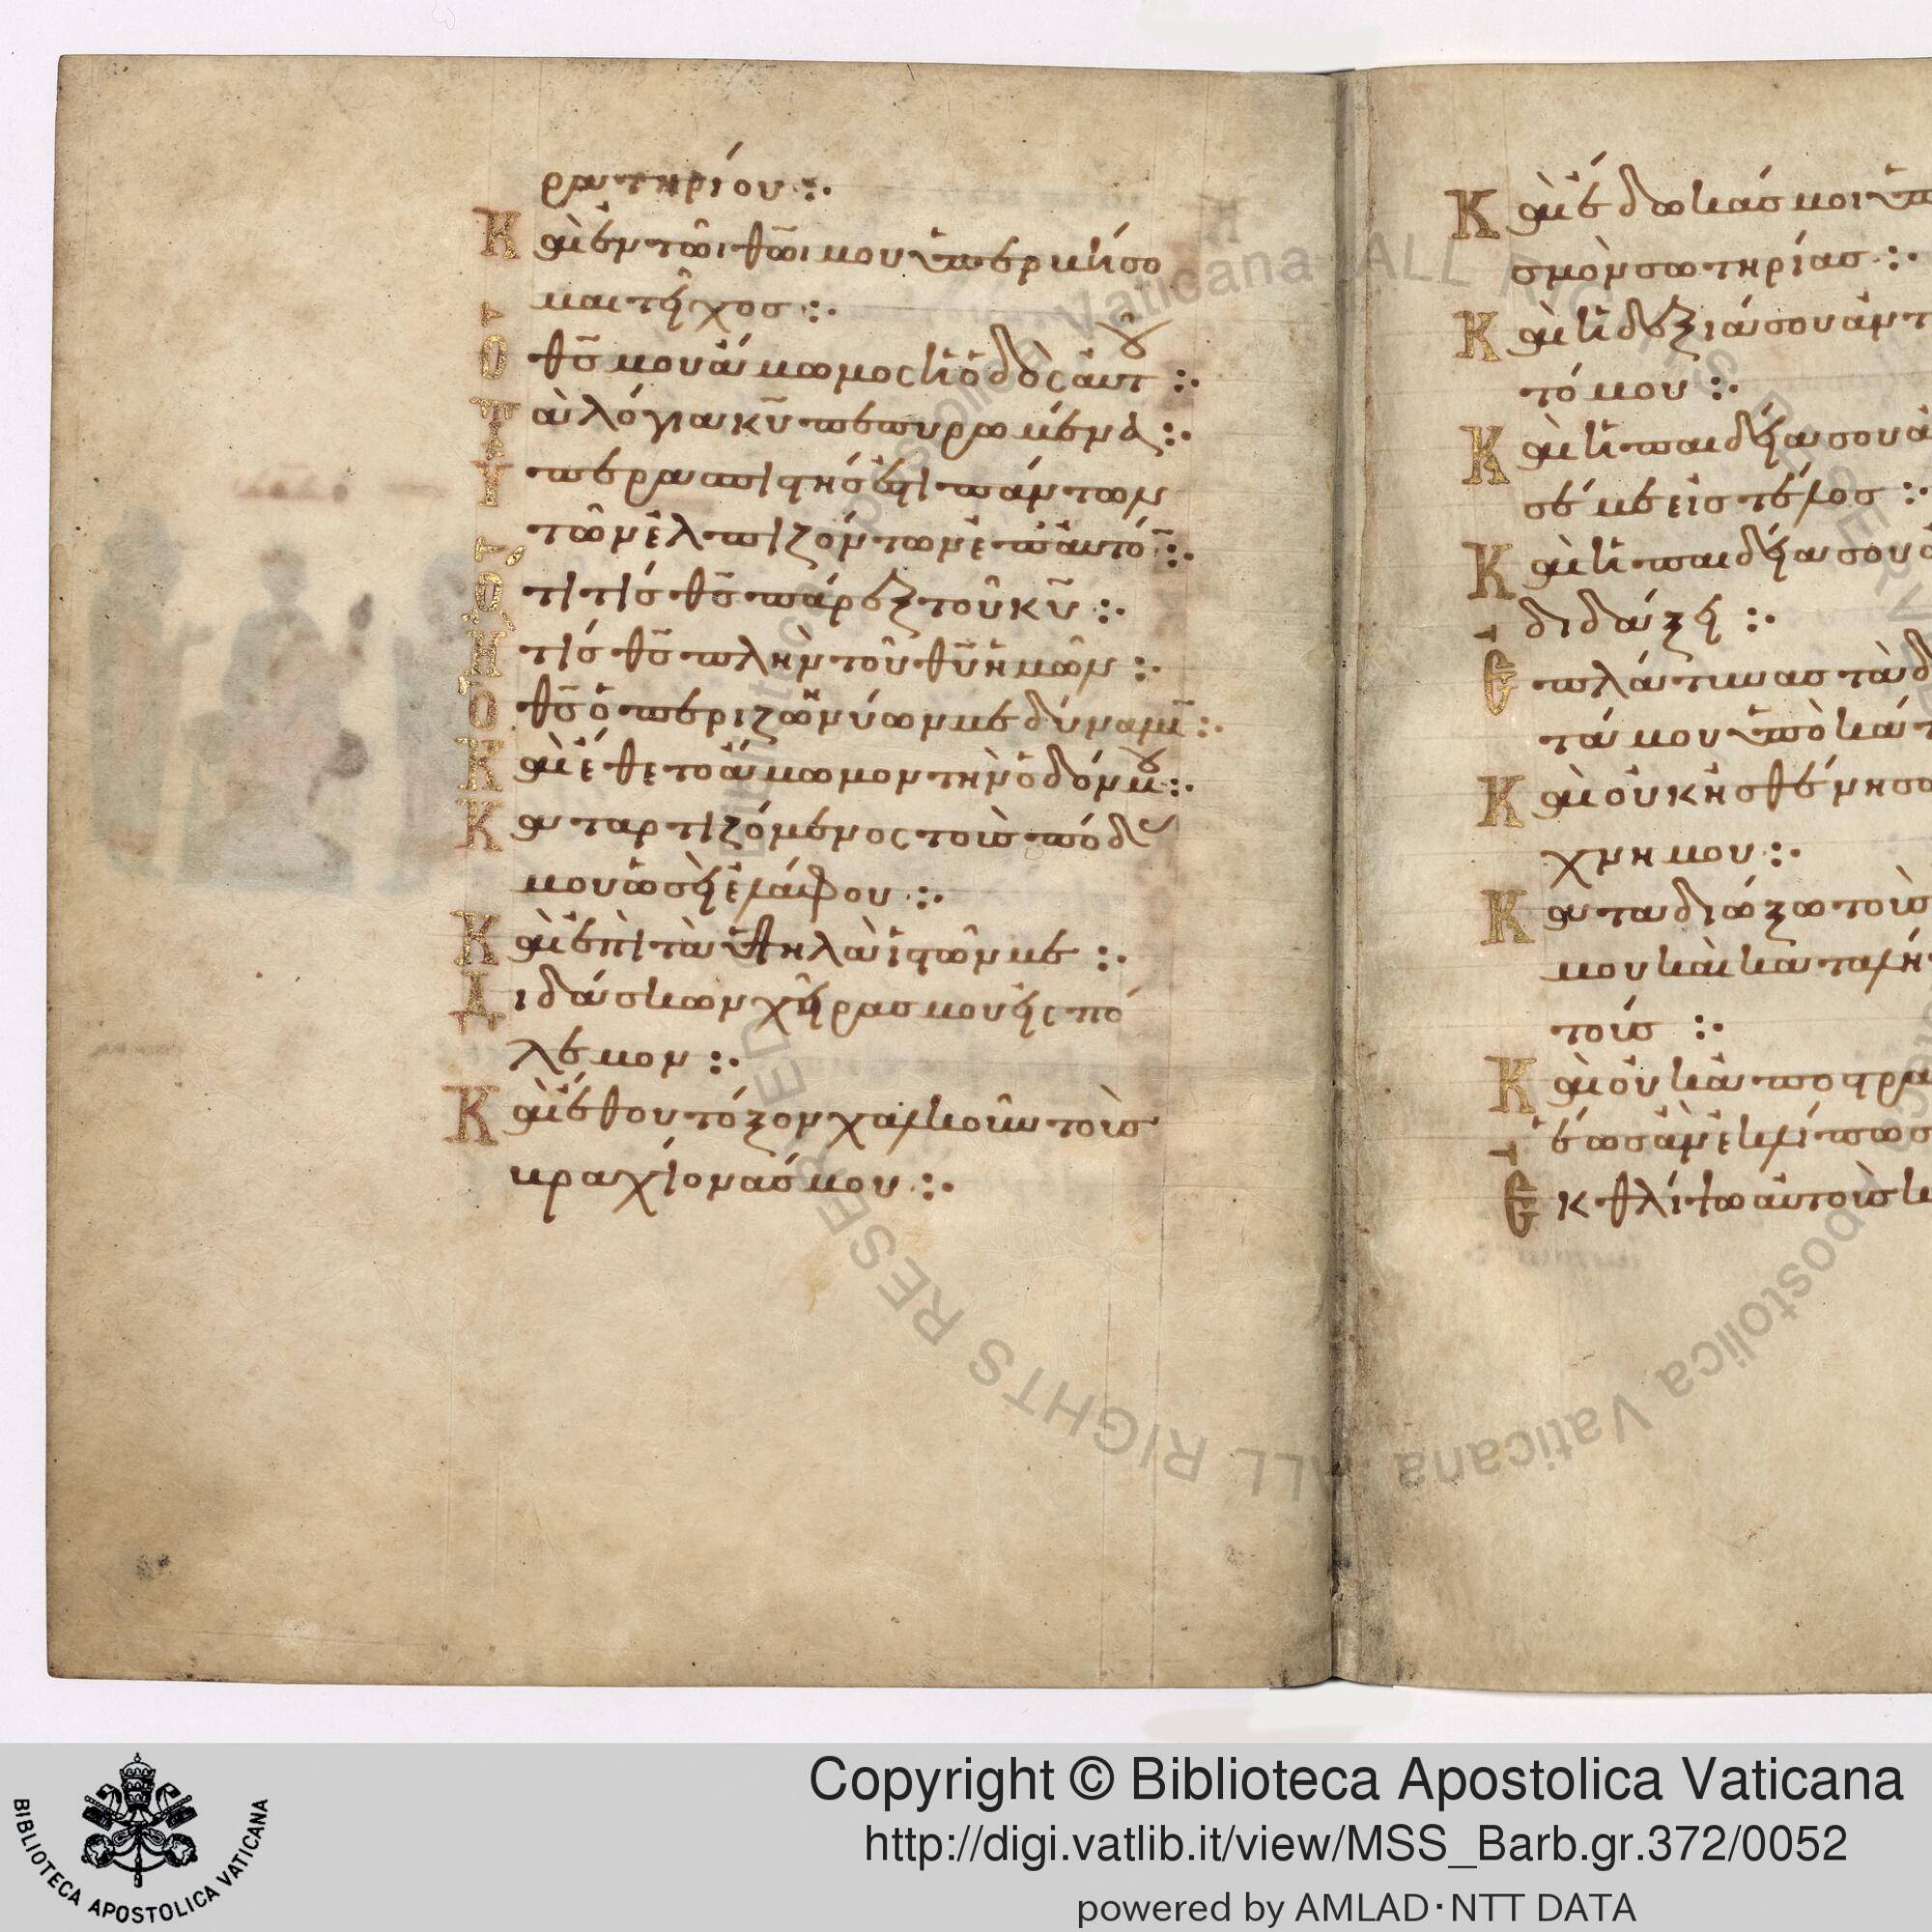 ρατηρίου :·
Καὶ ἐν τῶι θω̅ι μου ὑπερβήσο
μαι τεῖχος :·
Ὁ θς̅ μου ἄμωμος ἡ ὁδὸς αὐτοῦ :·
Τὰ λόγια κυ̅ πεπυρωμένα :·
Ὑπερασπιστής ἐστι πάντων
τῶν ἐλπιζόντων ἐπ' αὐτό̅ :·
Ὅτι τίς θς̅ πάρεξ τοῦ κυ̅ :·
Ἢ τίς θς̅ πλὴν τοῦ θυ̅ ἡμῶν :·
Ὁ θς̅ ὁ περιζωννύων με δύναμι̅ :·
Καὶ ἔθετο ἄμωμον τὴν ὁδόν μου :·
Καταρτιζόμενος τοὺς πόδας
μου ὡσεὶ ἐλάφου :·
Καὶ ἐπὶ τὰ ὑψηλὰ ἱστῶν με :·
Διδάσκων χεῖρας μου εἰς πό
λεμον :·
Καὶ ἔθου τόξον χαλκοῦν τοὺς
βραχίονάς μου :·
Καὶ ἔδωκάς μοι ὑπ
σμὸν σωτηρίας :·
Καὶ ἡ δεξιά σου ἀντ
τό μου :·
Καὶ ἡ παιδεία σου ἀ
σέ με εἰς τέλος :·
Καὶ ἡ παιδεία σου α
διδάξει :·
Ἐπλάτυνας τὰ δ
τά μου ὑποκάτ
Καὶ οὐκ ἠσθένησα
χνη μου :·
Καταδιώξω τοὺς
μου καὶ καταλή
τούς :·
Καὶ οὐκ ἀποστρα
ἕως ἂν ἐκλίπωσ
Ἐκθλίψω αὐτοὺς κ
Biblioteca Apostolica Vaticana ALL RIGHTS RESERVED
Copyright © Biblioteca Apostolica Vaticana
http://digi.vatlib.it/view/MSS_Barb.gr.372/0052
powered by AMLAD·NTT DATA
BIBLIOTECA APOSTOLICA VATICANA